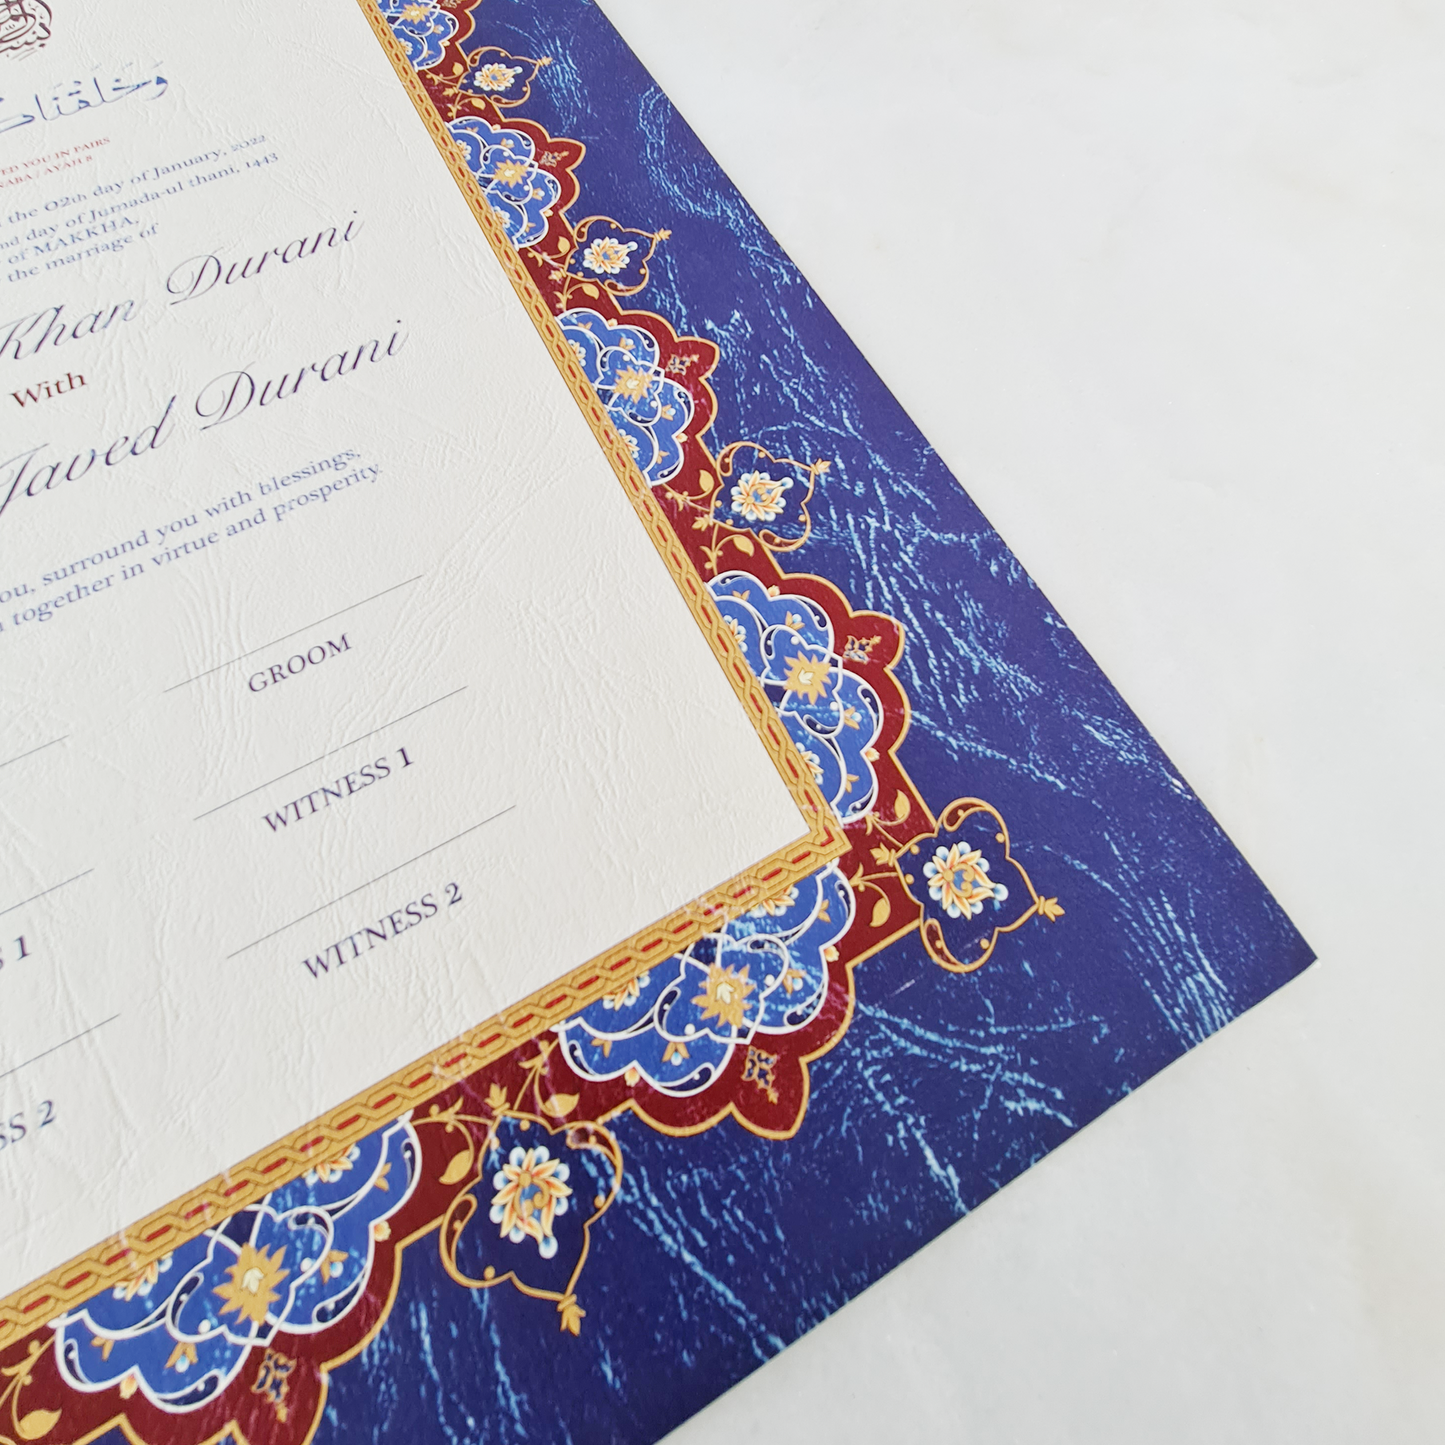 بسم
وَخَلَقْنَا
ED YOU IN PAIRS
NABA / AYAH 8
the 02th day of January, 2022
nd day of Jumada-ul thani, 1443
of MAKKHA,
the marriage of
Khan Durani
With
Javed Durani
ou, surround you with blessings,
together in virtue and prosperity.
GROOM
WITNESS 1
S 1
WITNESS 2
SS 2